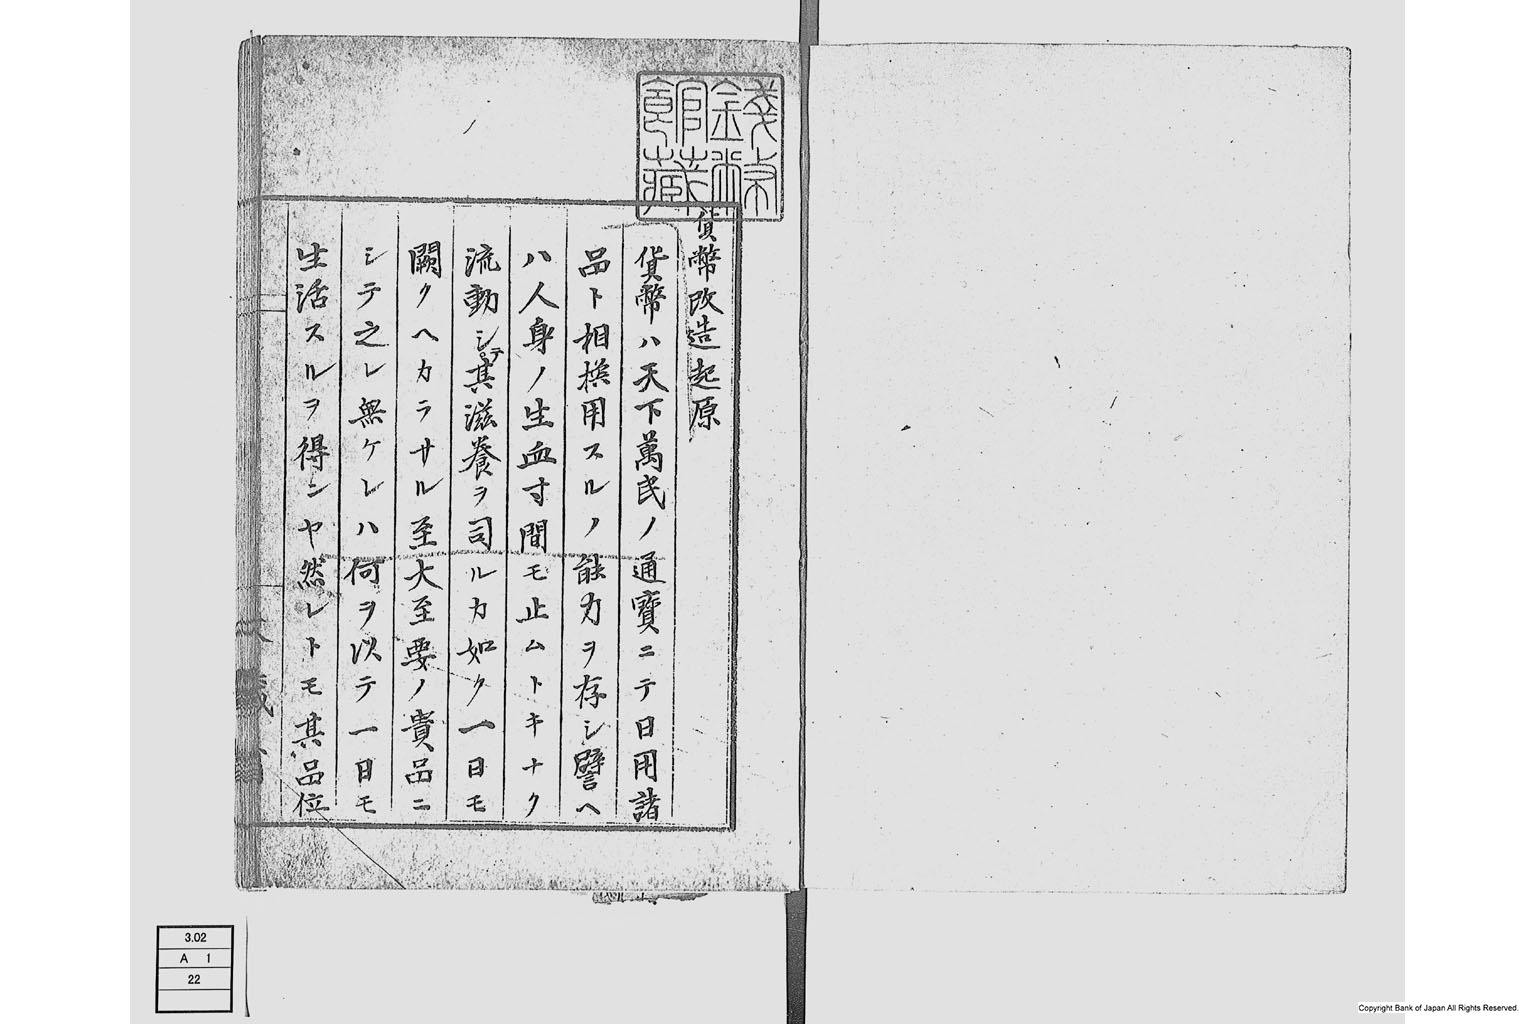 貨幣改造起原
貨幣ハ天下萬民ノ通寳ニテ日用諸
品ト相換用スルノ能力ヲ存シ譬ヘ
ハ人身ノ生血寸間モ止ムトキナク
流動シテ其滋養ヲ司ルカ如ク一日モ
闕クヘカラサル至大至要ノ貴品ニ
シテ之レ無ケレハ何ヲ以テ一日モ
生活スルヲ得ンヤ然レトモ其品位
錢幣
館藏
3.02
A 1
22
Copyright Bank of Japan All Rights Reserved.